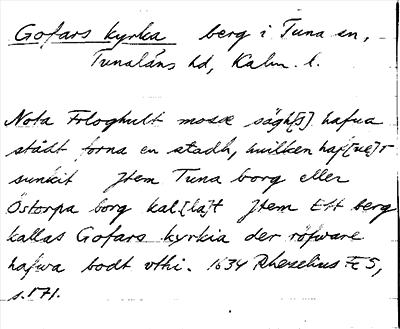 Gofars kyrka berg i Tuna sn,
Tunaläns hd, Kalm. l.
Nota Frloghult mosse sägh[s] hafua
stådt forna en stadh, huilken haf[ue]r
sunkit Jtem Tuna borg eller
Östorpa borg kal[la]t Jtem Ett berg
kallas Gofars kyrkia der röfware
hafwa bodt vthi. 1634 Rhezelius Fc 5,
s. 171.